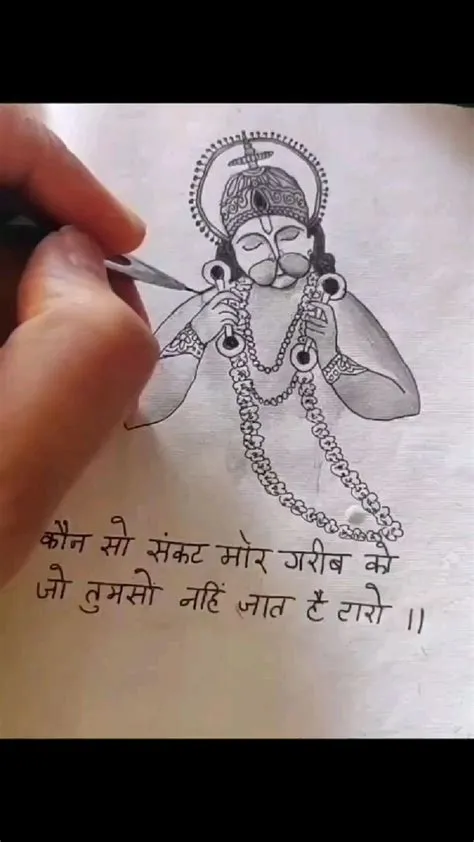 कौन सो संकट मोर गरीब को
जो तुमसों नहिं जात है टारो ॥